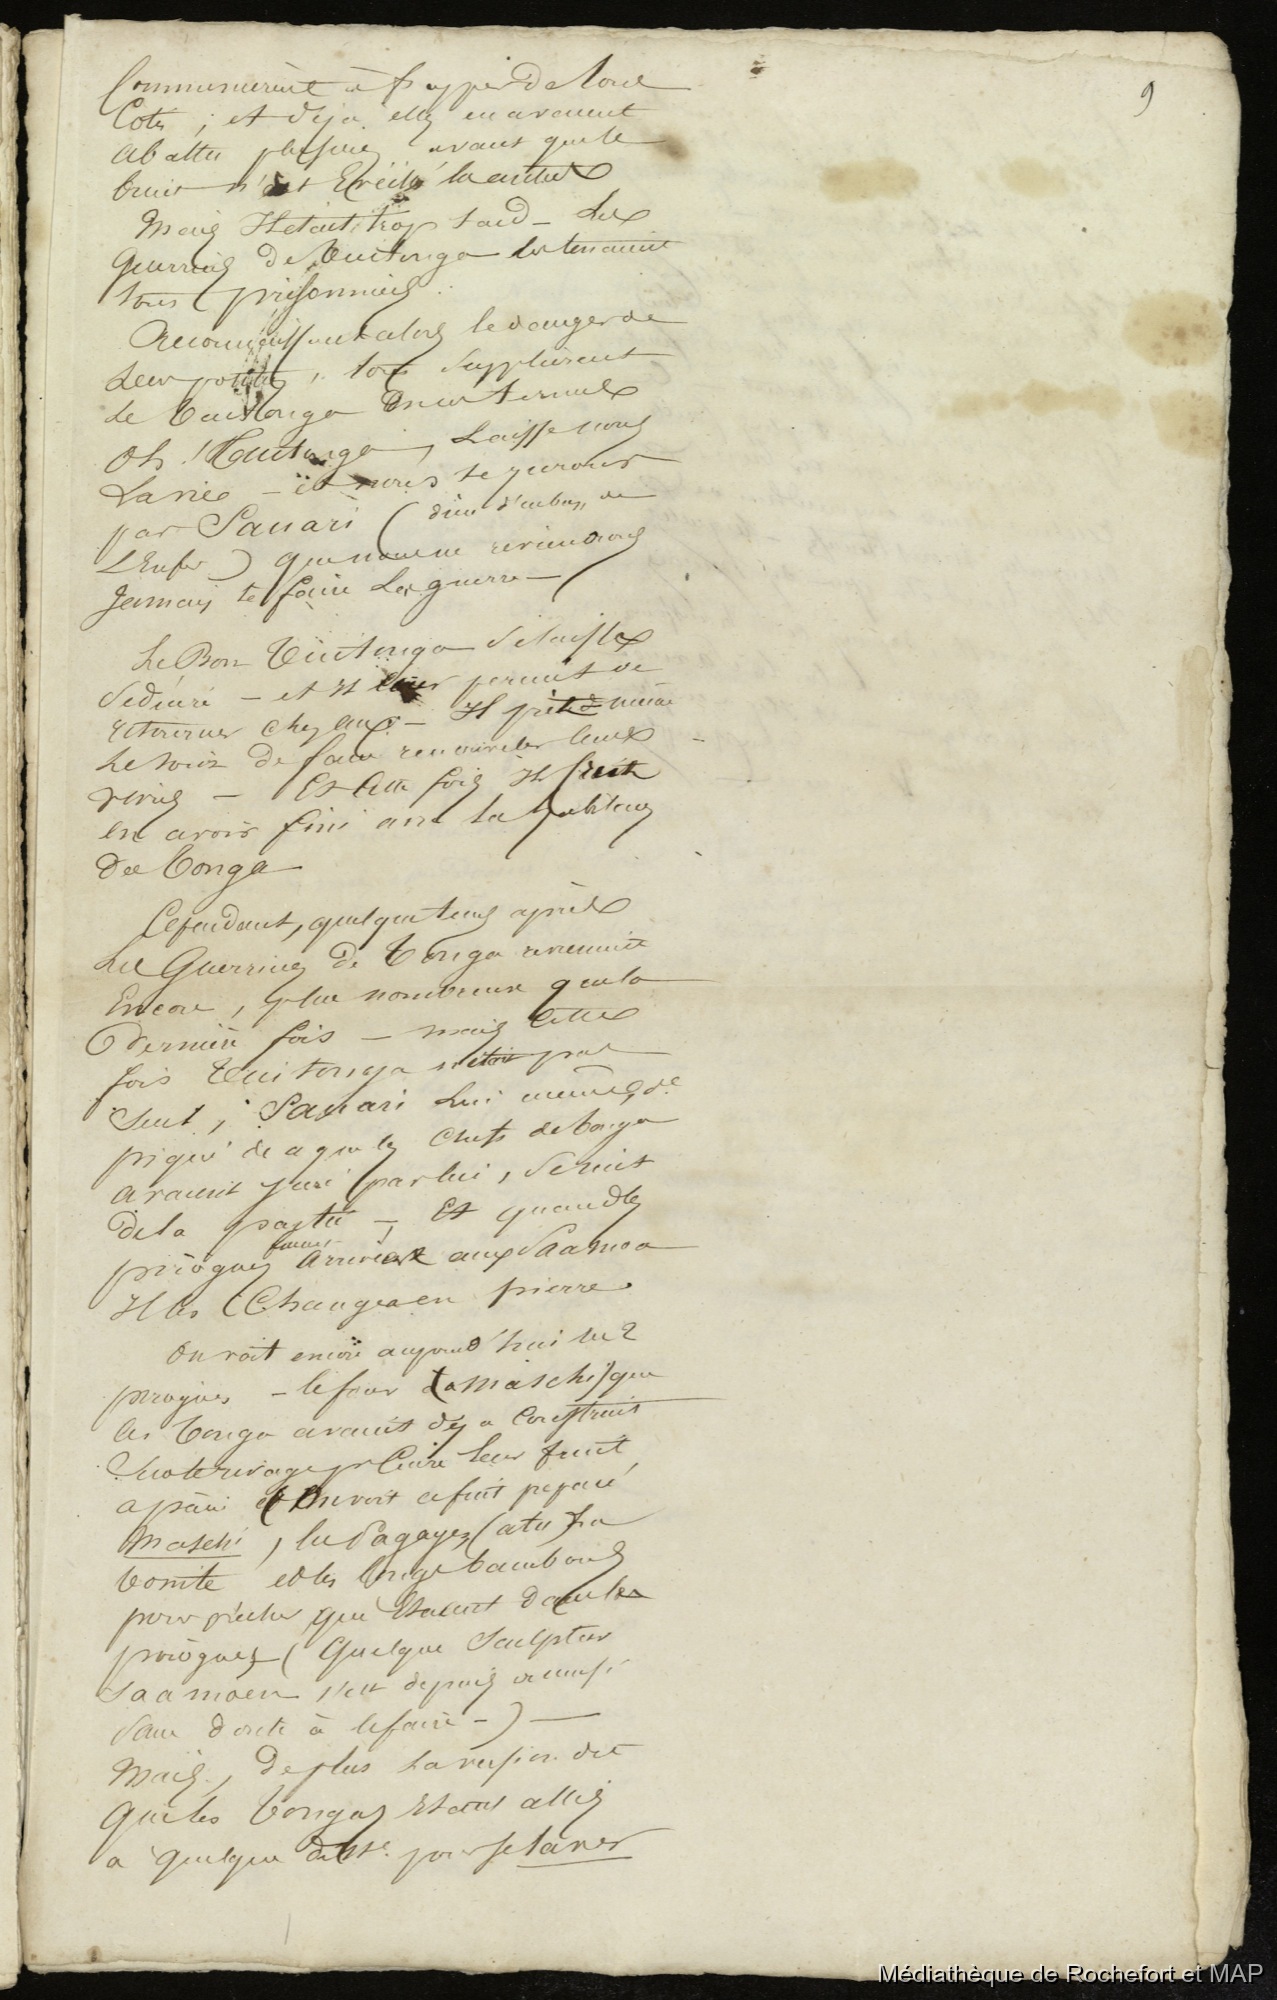 9
Commencèrent à frapper de tous
Cotés ; et deja elles en avaient
abattu plusieurs avant que le
bruit n'eut Eveillé les autres
Mais Il etait trop tard - Les
Guerriers de Tuitonga les tenaient
tous prisonniers.
Reconnaissant alors le danger de
leur position, tous supplièrent
le Tuitonga en ces termes
Oh ! Tuitonga, Laisse nous
La vie - et nous te jurons
par Sauari ( dieu d'en bas, de
L'Enfer ) que nous ne reviendrons
Jamais te faire La guerre -
Le Bon Tuitonga se laissa
Seduire - et Il leur permit de
retourner chez eux - Il prit même
le soin de faire renouveler leurs
vivres - Et cette fois Il crut
en avoir fini avec les habitans
de Tonga
Cependant, quelque tems après
Les Guerriers de Tonga revinrent
Encore, plus nombreux que la
dernière fois - mais cette
fois Tuitonga n'était pas
Seul ; Sauari Lui même,
piqué de ce que les Chefs de Tonga
avaient juré par lui, se mit
de la partie - Et quand les
pirogues furent arrivées aux Saamoa
Il les Changea en pierre
On voit encore aujourd'hui les 2
pirogues - le four (a maschi) que
les Tonga avaient deja construit
Sur le rivage pr Cuire leur fruit
a pain et On voit ce fruit preparé
Maschi, les Pagayes (atu) la
tomite et les longs bambous
pour pêcher qui Etaient dans les
pirogues ( Quelque Sculpteur
Saamoen s'est depuis amusé
Sans doute à les faire - ) -
Mais, De plus La version dit
Que les Tongas Etant allés
a quelque distce pour se laver
Médiathèque de Rochefort et MAP